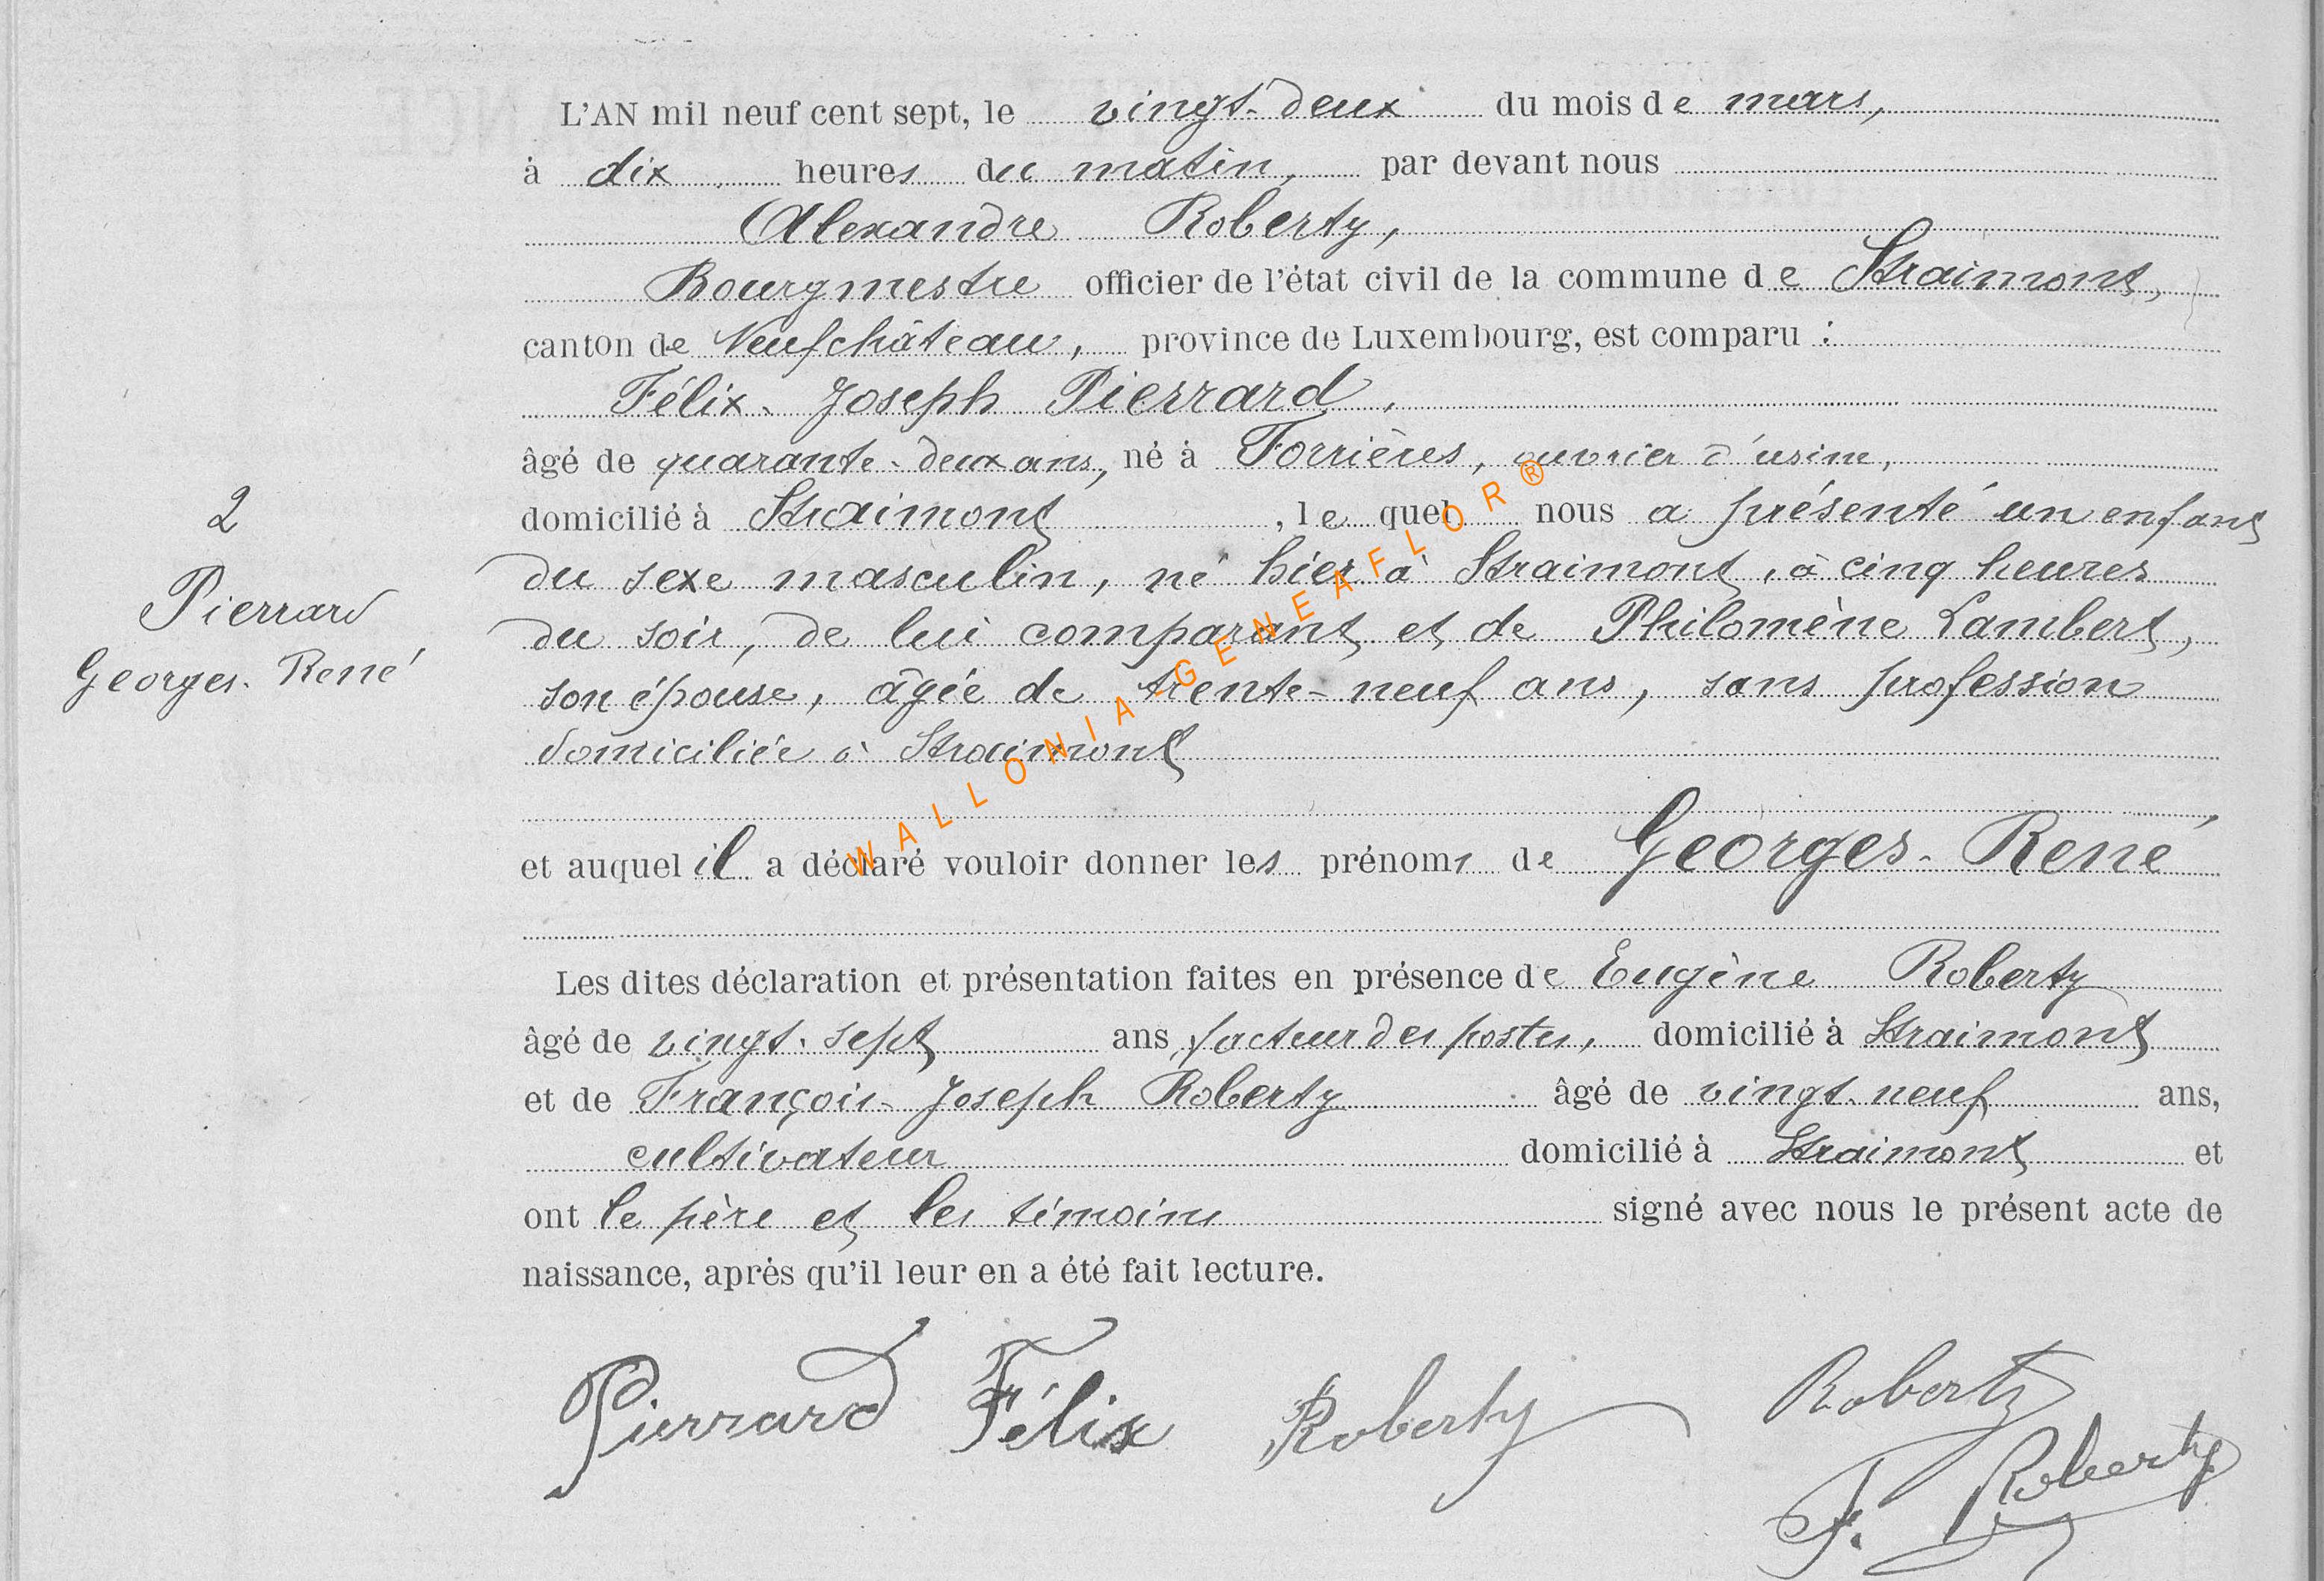 L'AN mil neuf cent sept, le vingt-deux du mois de mars,
à dix heures du matin, par devant nous
Alexandre Roberty,
Bourgmestre officier de l'état civil de la commune de Straimont,
canton de Neufchâteau, province de Luxembourg, est comparu :
Félix-Joseph Pierrard,
âgé de quarante-deux ans, né à Forrières, ouvrier d'usine,
domicilié à Straimont, lequel nous a présenté un enfant
du sexe masculin, né hier à Straimont, à cinq heures
du soir, de lui comparant et de Philomène Lambert,
son épouse, âgée de trente-neuf ans, sans profession
domiciliée à Straimont
et auquel il a déclaré vouloir donner les prénoms de Georges-René
Les dites déclaration et présentation faites en présence de Eugène Roberty
âgé de vingt-sept ans, facteur des postes, domicilié à Straimont
et de François-Joseph Roberty âgé de vingt-neuf ans,
cultivateur domicilié à Straimont et
ont le père et les témoins signé avec nous le présent acte de
naissance, après qu'il leur en a été fait lecture.
2
Pierrard
Georges-René
Pierrard Félix Roberty Roberty
F. Roberty
WALLONIA-GENEAFLOR®